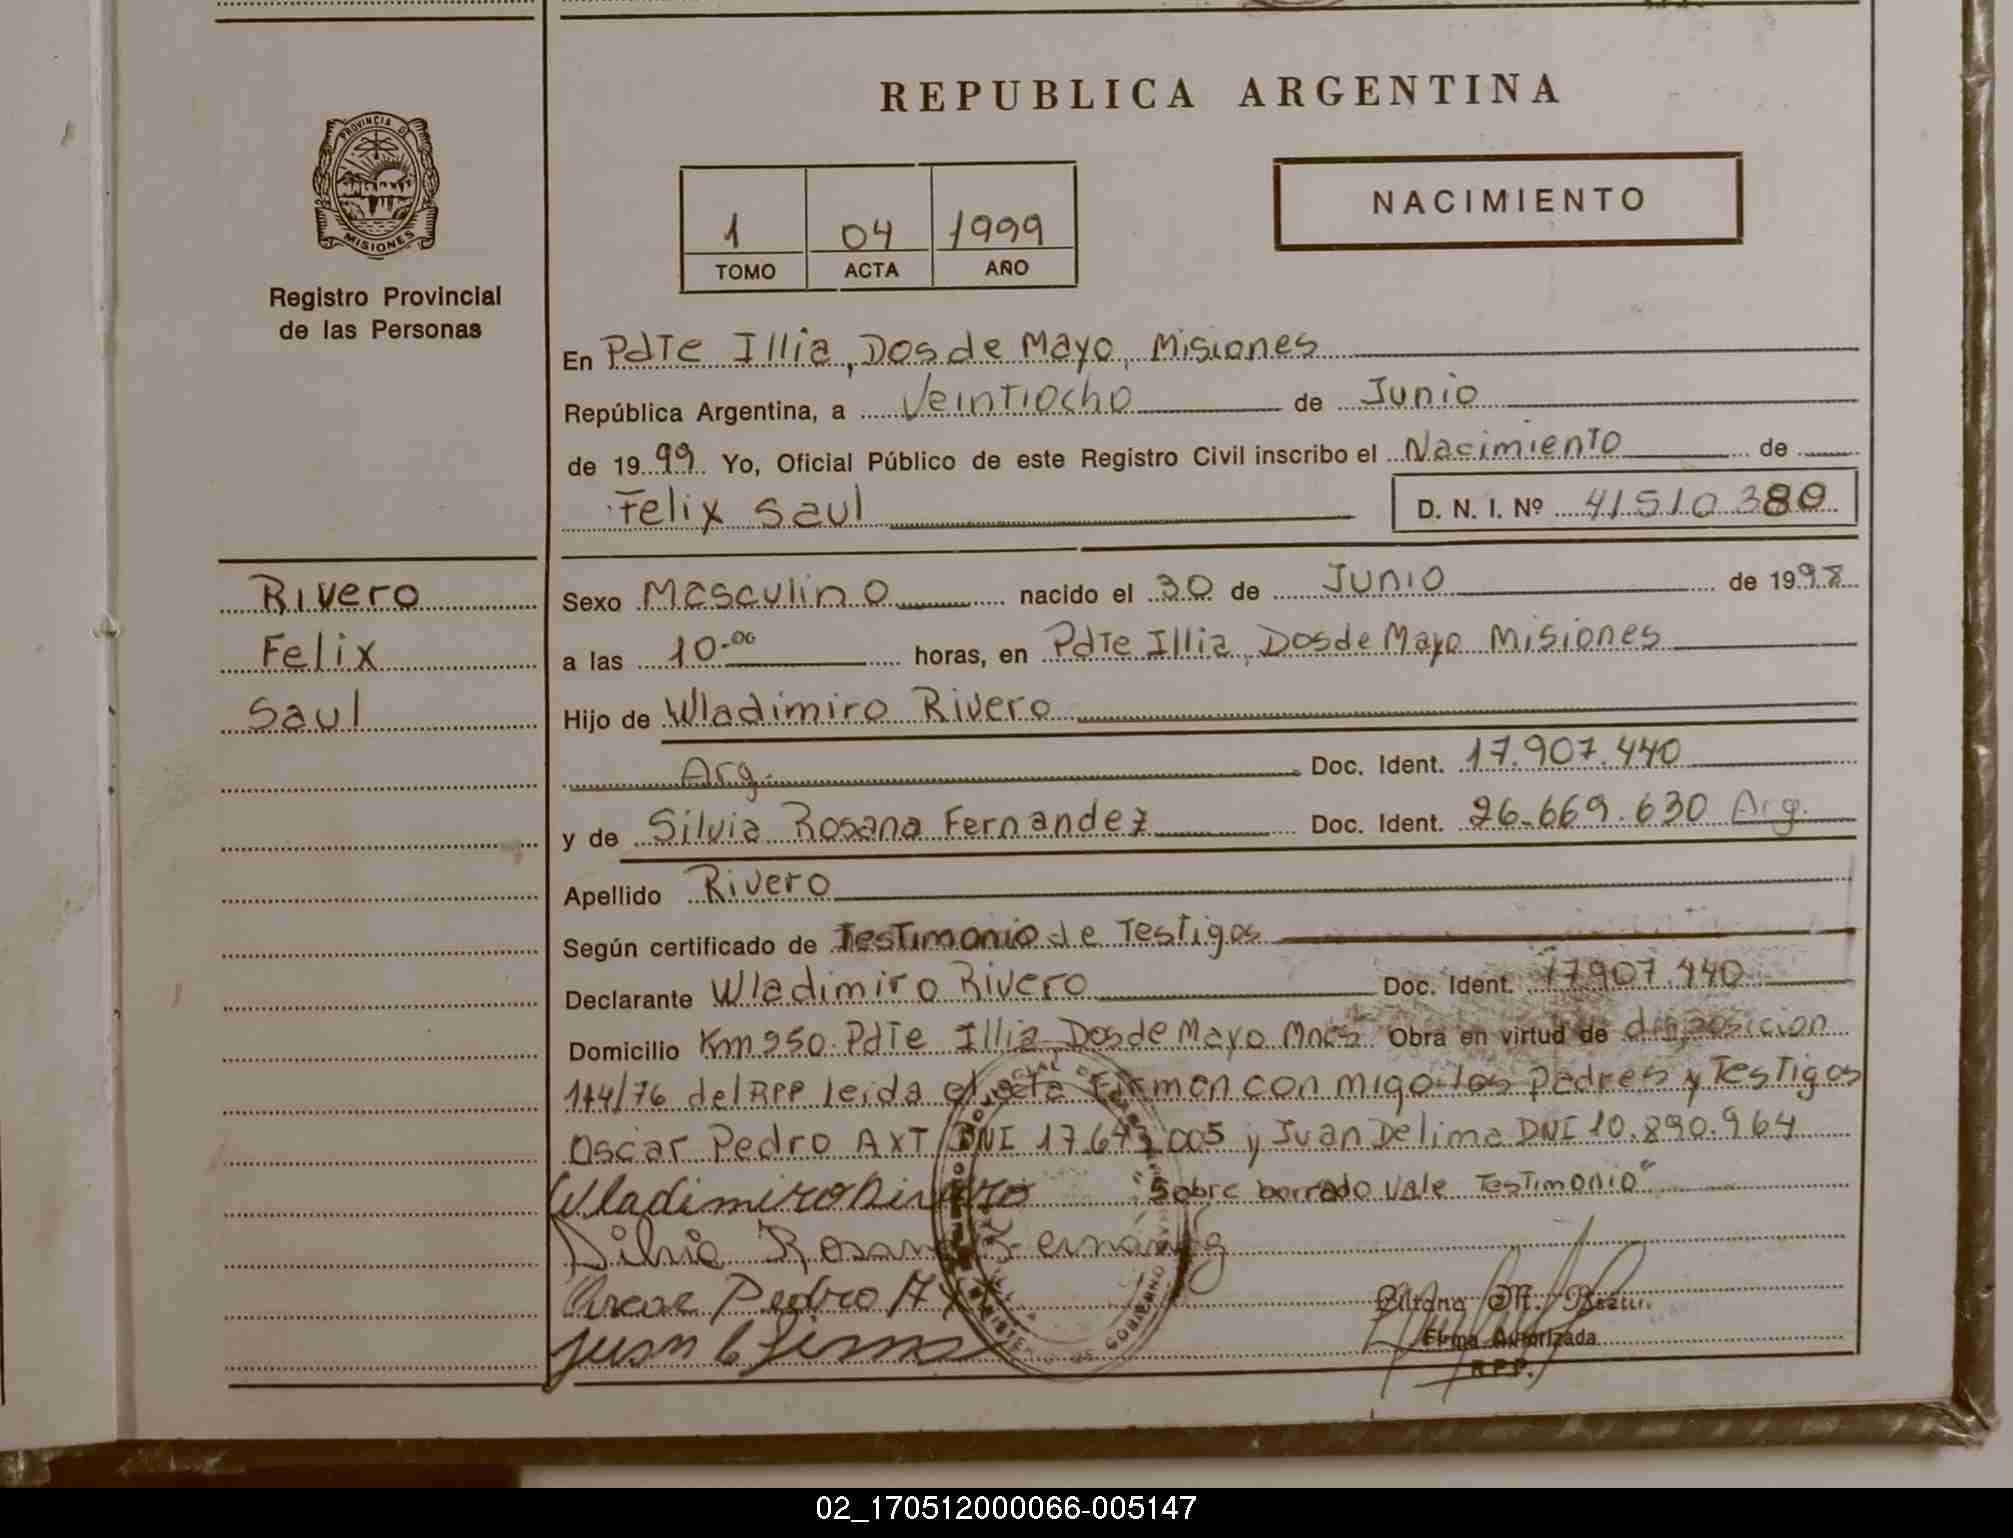 REPUBLICA ARGENTINA
PROVINCIA DE
MISIONES
Registro Provincial
de las Personas
1 04 1999
TOMO ACTA AÑO
NACIMIENTO
En PdTe Illia, Dos de Mayo, Misiones
República Argentina, a Veintiocho de Junio
de 1999 Yo, Oficial Público de este Registro Civil inscribo el Nacimiento de
Felix Saul D. N. I. Nº 41510380
Rivero
Felix
Saul
Sexo Masculino nacido el 30 de Junio de 1998
a las 10.00 horas, en PdTe Illia, Dos de Mayo Misiones
Hijo de Wladimiro Rivero
Arg. Doc. Ident. 17.907.440
y de Silvia Rosana Fernandez Doc. Ident. 26.669.630 Arg.
Apellido Rivero
Según certificado de Testimonio de Testigos
Declarante Wladimiro Rivero Doc. Ident. 17907.440
Domicilio Km 250. PdTe Illia, Dos de Mayo Mnes Obra en virtud de disposicion
144/76 del RPP leida el acta Firman con migo los Padres y Testigos
Oscar Pedro AXT DNI 17.643.005 y Juan Delima DNI 10.890.964
Wladimiro Rivero "Sobre borrado Vale Testimonio"
Silvia Rosana Fernandez
Oscar Pedro Axt
Juan Lima
Firma Autorizada
R.P.P.
02_170512000066-005147